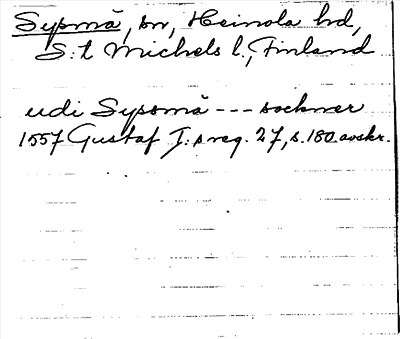 Sysmä, sn, Heinola hd,
S:t Michels l., Finland
udi Syssmä --- sockner
1557 Gustaf I:s reg. 27, s. 180 avskr.